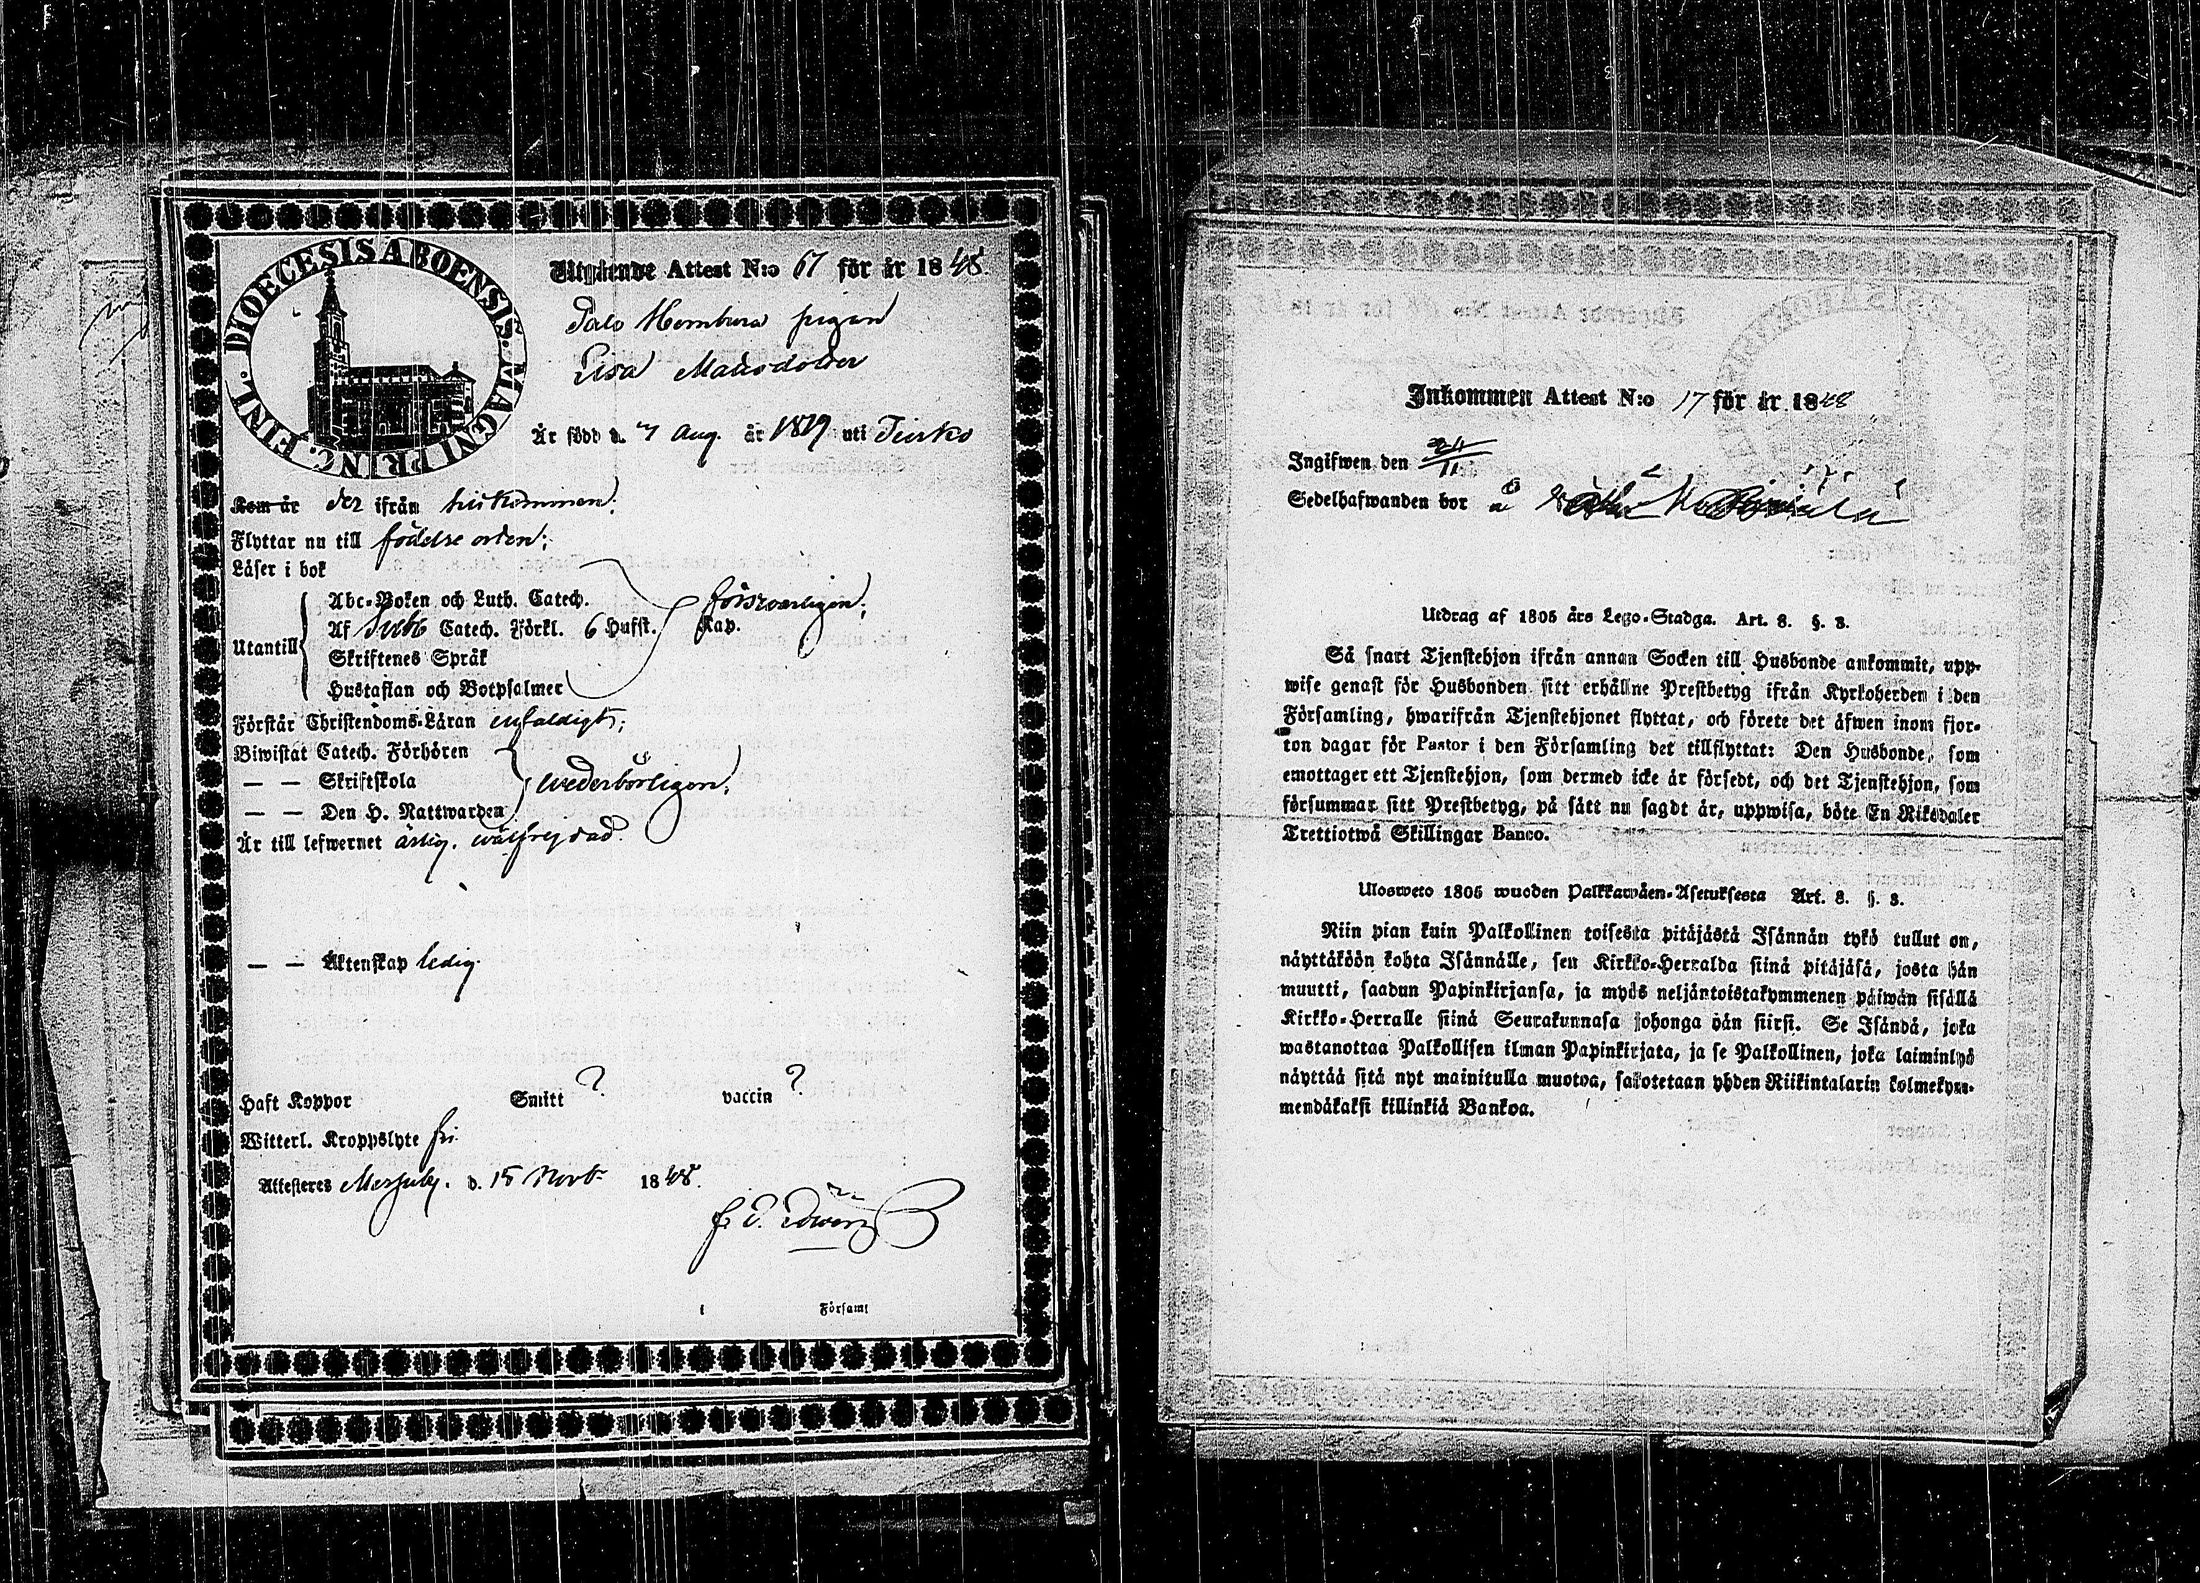 DIOECESIS ABOENSIS. MAGNI PRINC. FINL.
Utgående Attest N:o 67 för år 1848.
pigan
Lisa
Är född d. 7 Aug. år 1829 uti
Kom år der ifrån hitkommen;
Flyttar nu till födelse orten;
Läser i bok
Abc-Boken och Luth. Catech. försvarligen;
Af Sveb Catech. Förkl. 6 Hufst. Kap.
Utantill
Skriftenes Språk
Hustaflan och Botpsalmer
Förstår Christendoms-Läran enfaldigt;
Biwistat Catech. Förhören
— — Skriftskola wederbörligen;
— — Den H. Nattwarden
Är till lefwernet ärlig. wälfrejdad.
— — Äktenskap ledig.
Haft Koppor Smitt ? vaccin ?
Witterl. Kroppslyte fri.
Attesteres d. 15 Novb. 1848.
i Församl
Inkommen Attest N:o 17 för år 1848
Ingifwen den 24/11
Sedelhafwanden bor å
Utdrag af 1805 års Lego-Stadga. Art. 8. §. 8.
Så snart Tjenstehjon ifrån annan Socken till Husbonde ankommit, upp-
wise genast för Husbonden sitt erhållne Prestbetyg ifrån Kyrkoherden i den
Församling, hwarifrån Tjenstehjonet flyttat, och förete det äfwen inom fjor-
ton dagar för Pastor i den Församling det tillflyttat: Den Husbonde, som
emottager ett Tjenstehjon, som dermed icke är försedt, och det Tjenstehjon, som
försummar sitt Prestbetyg, på sätt nu sagdt är, uppwisa, böte En Riksdaler
Trettiotwå Skillingar Banco.
Ulosweto 1805 wuoden Palkkawäen-Asetuksesta Art. 8. §. 8.
Niin pian kuin Palkollinen toisesta pitäjästä Isännän tykö tullut on,
näyttäköön kohta Isännälle, sen Kirkko-Herralda siinä pitäjäsä, josta hän
muutti, saadun Papinkirjansa, ja myös neljäntoistakymmenen päiwän sisällä
Kirkko-Herralle siinä Seurakunnasa johonga hän siirsi. Se Isändä, joka
wastanottaa Palkollisen ilman Papinkirjata, ja se Palkollinen, joka laiminlyö
näyttää sitä nyt mainitulla muotoa, sakotetaan yhden Riikintalarin kolmekym-
mendäkaksi killinkiä Bankoa.